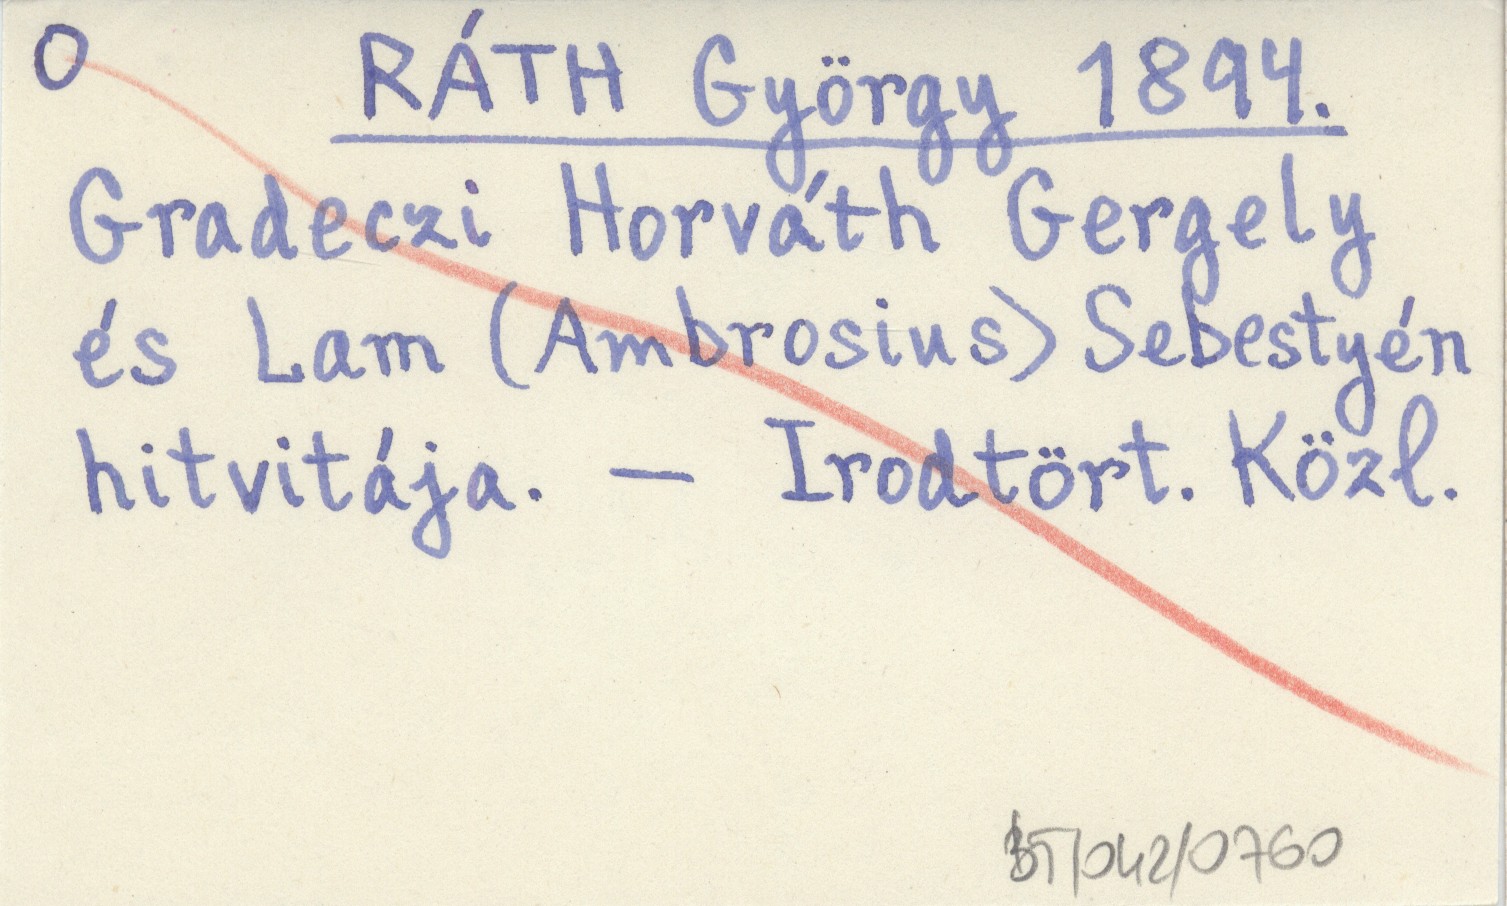 O RÁTH György 1894.
Gradeczi Horváth Gergely
és Lam (Ambrosius) Sebestyén
hitvitája. — Irodtört. Közl.
BT/042/0760